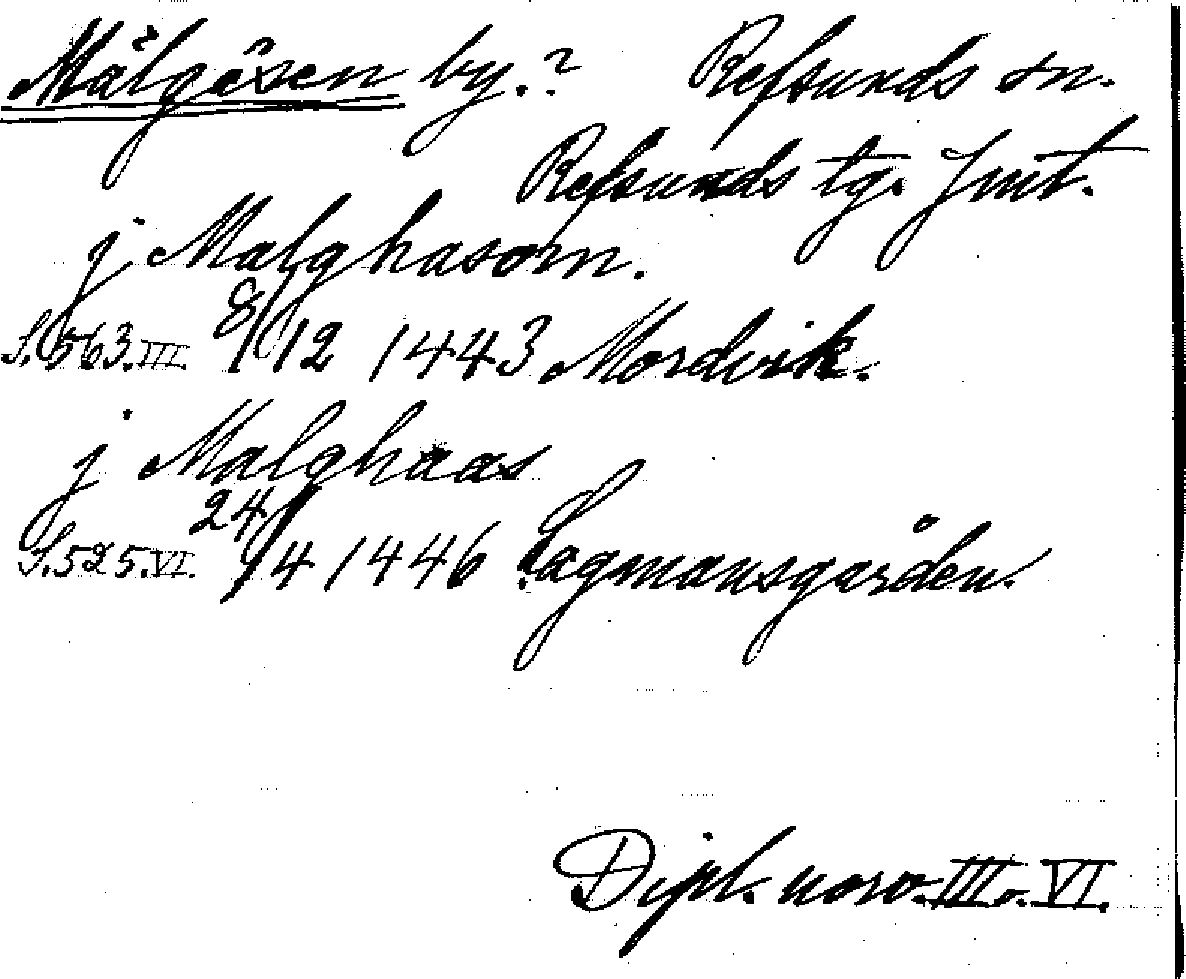 Målgåsen by.? Refsunds sn.
Refsunds tg. Jmt.
j Malghasom.
S. 563. III. 8/12 1443 Mordvik.
j Malghaas
S. 525. VI. 24/4 1446 Lagmansgården.
Dipl. norv. III o. VI.